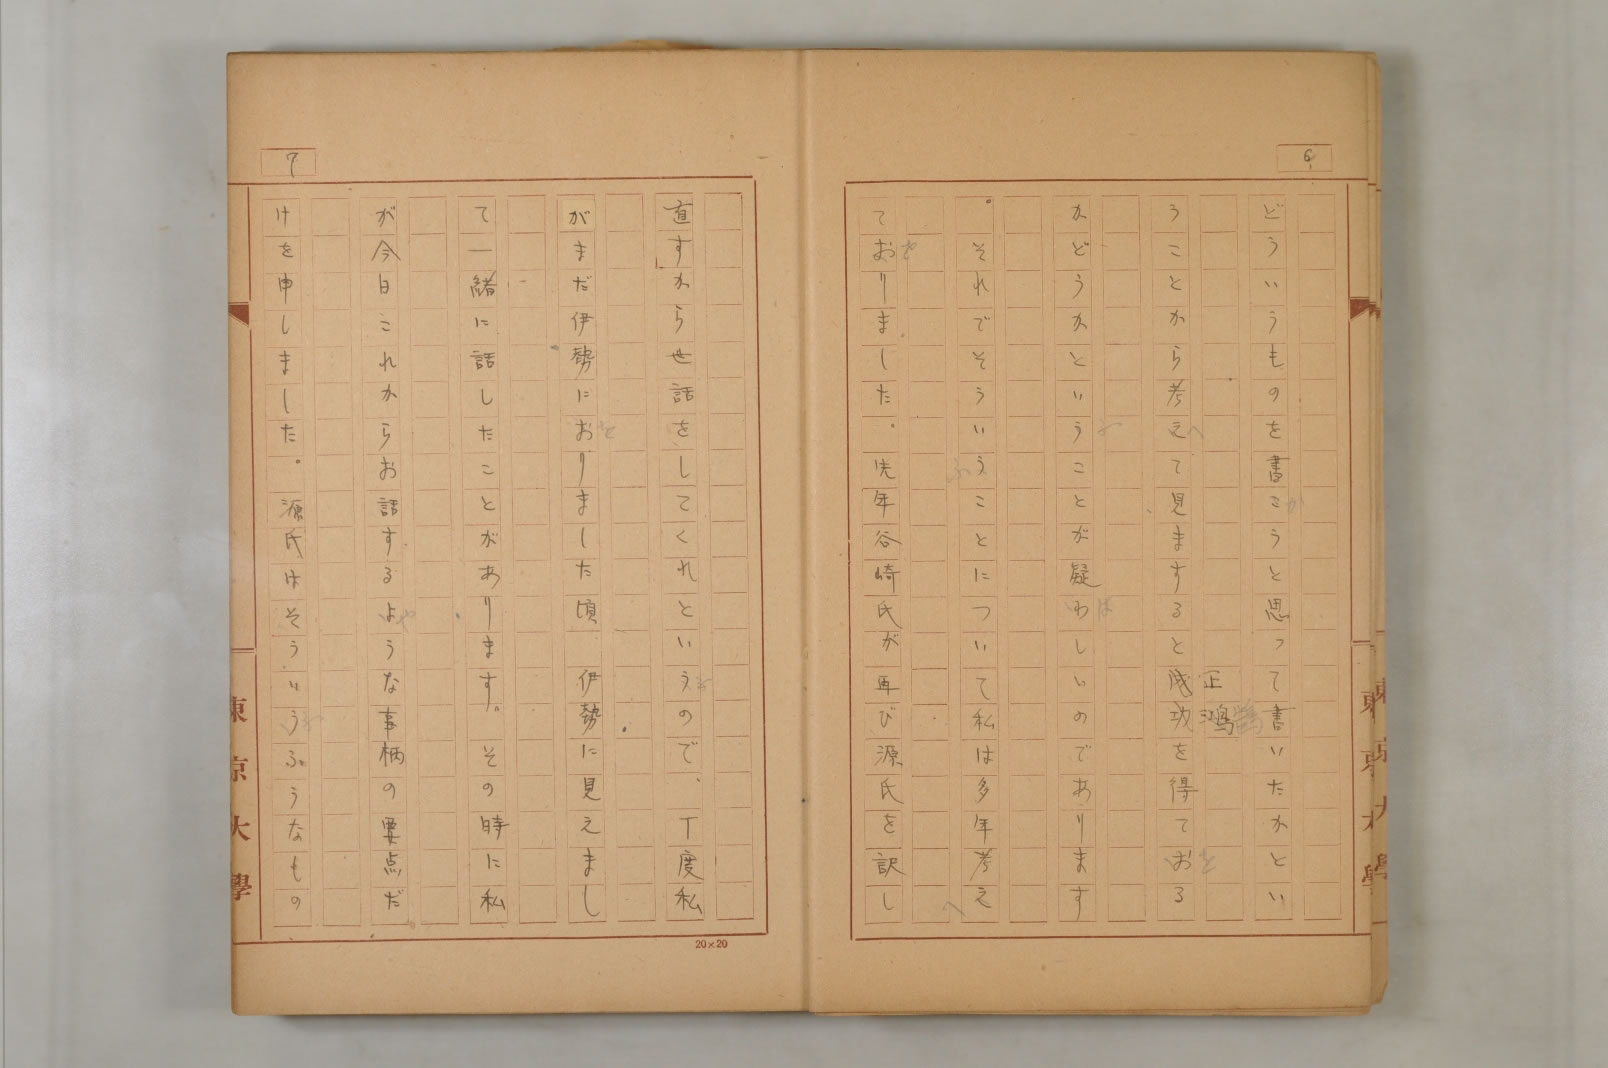 6
どういうものを書こうと思って書いたかとい
うことから考えて見ますると成功を得ておる
正鴻
かどうかということが疑わしいのであります
。それでそういうことについて私は多年考え
ておりました。先年谷崎氏が再び源氏を訳し
7
直すから世話をしてくれというので、丁度私
がまだ伊勢におりました頃 伊勢に見えまし
て一緒に話したことがあります。その時に私
が今日これからお話するような事柄の要点だ
けを申しました。源氏はそういうふうなもの
20×20
東京大學
東京大學